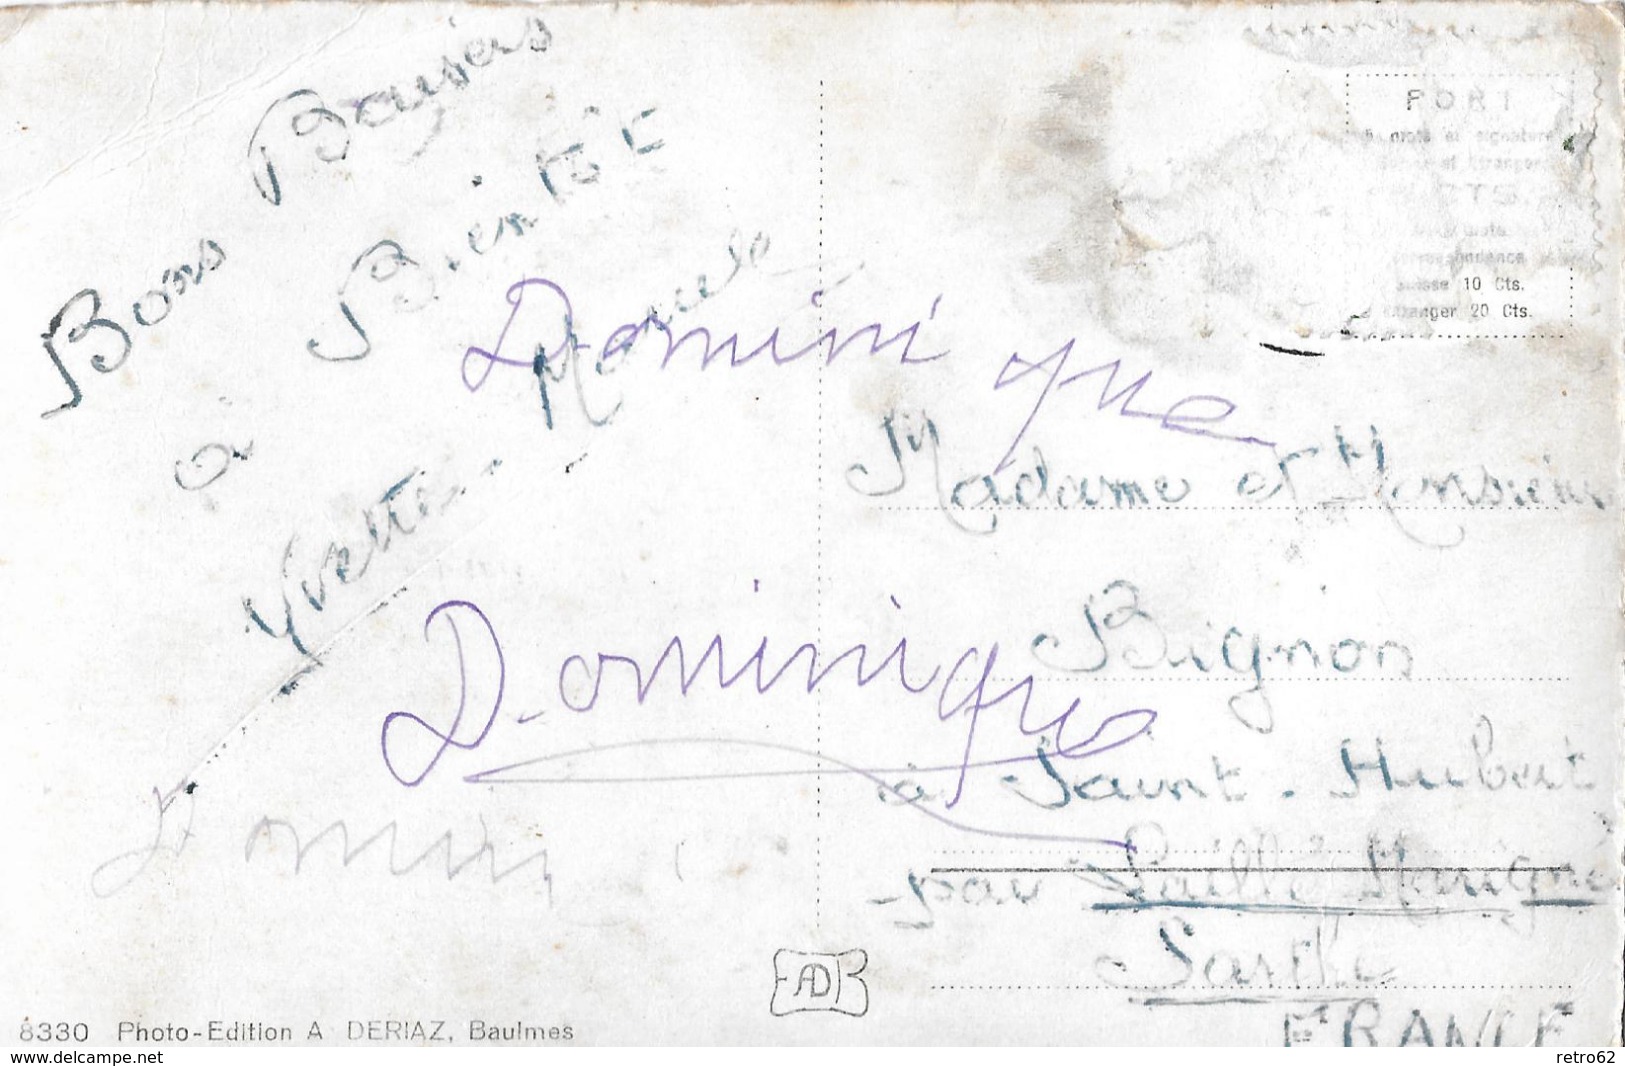 Bons Baisers
à Bientôt
Yvette - Marcelo
Dominique
Dominique
PORT
5 mots et signature
Suisse et Etranger
CTS.
mots
correspondance
Suisse 10 Cts.
Etranger 20 Cts.
Madame et Monsieur
Bignon
à Saint-Hubert
par Vaillé Marigné
Sarthe
FRANCE
ADB
8330 Photo-Edition A DERIAZ, Baulmes
www.delcampe.net
retro62